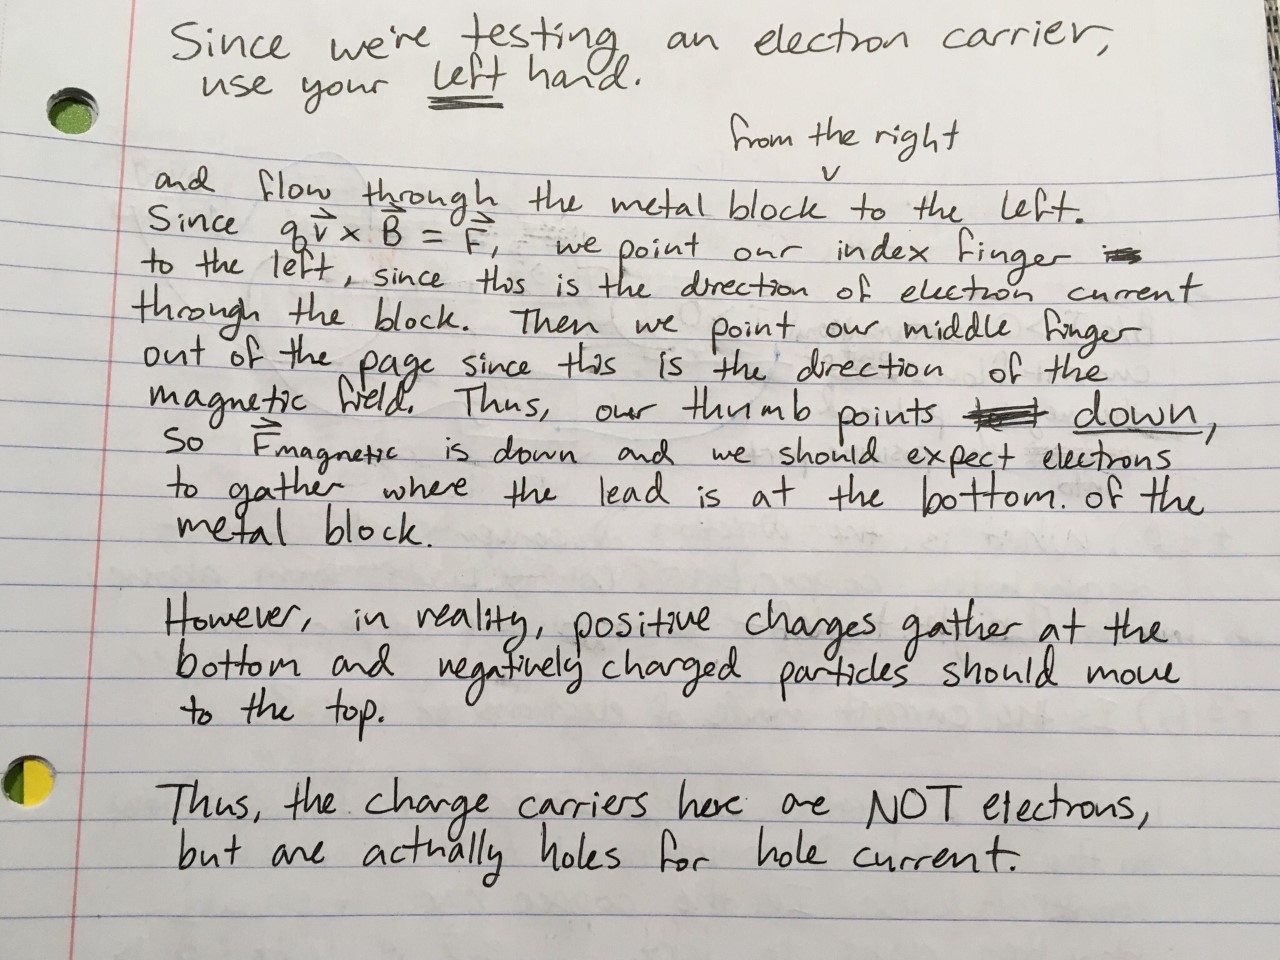 Since we're testing an electron carrier,
use your left hand.
from the right
v
and flow through the metal block to the left.
Since qv⃗ × B⃗ = F⃗, we point our index finger
to the left, since this is the direction of electron current
through the block. Then we point our middle finger
out of the page since this is the direction of the
magnetic field. Thus, our thumb points down,
so F⃗magnetic is down and we should expect electrons
to gather where the lead is at the bottom. of the
metal block.
However, in reality, positive charges gather at the
bottom and negatively charged particles should move
to the top.
Thus, the charge carriers here are NOT electrons,
but are actually holes for hole current.